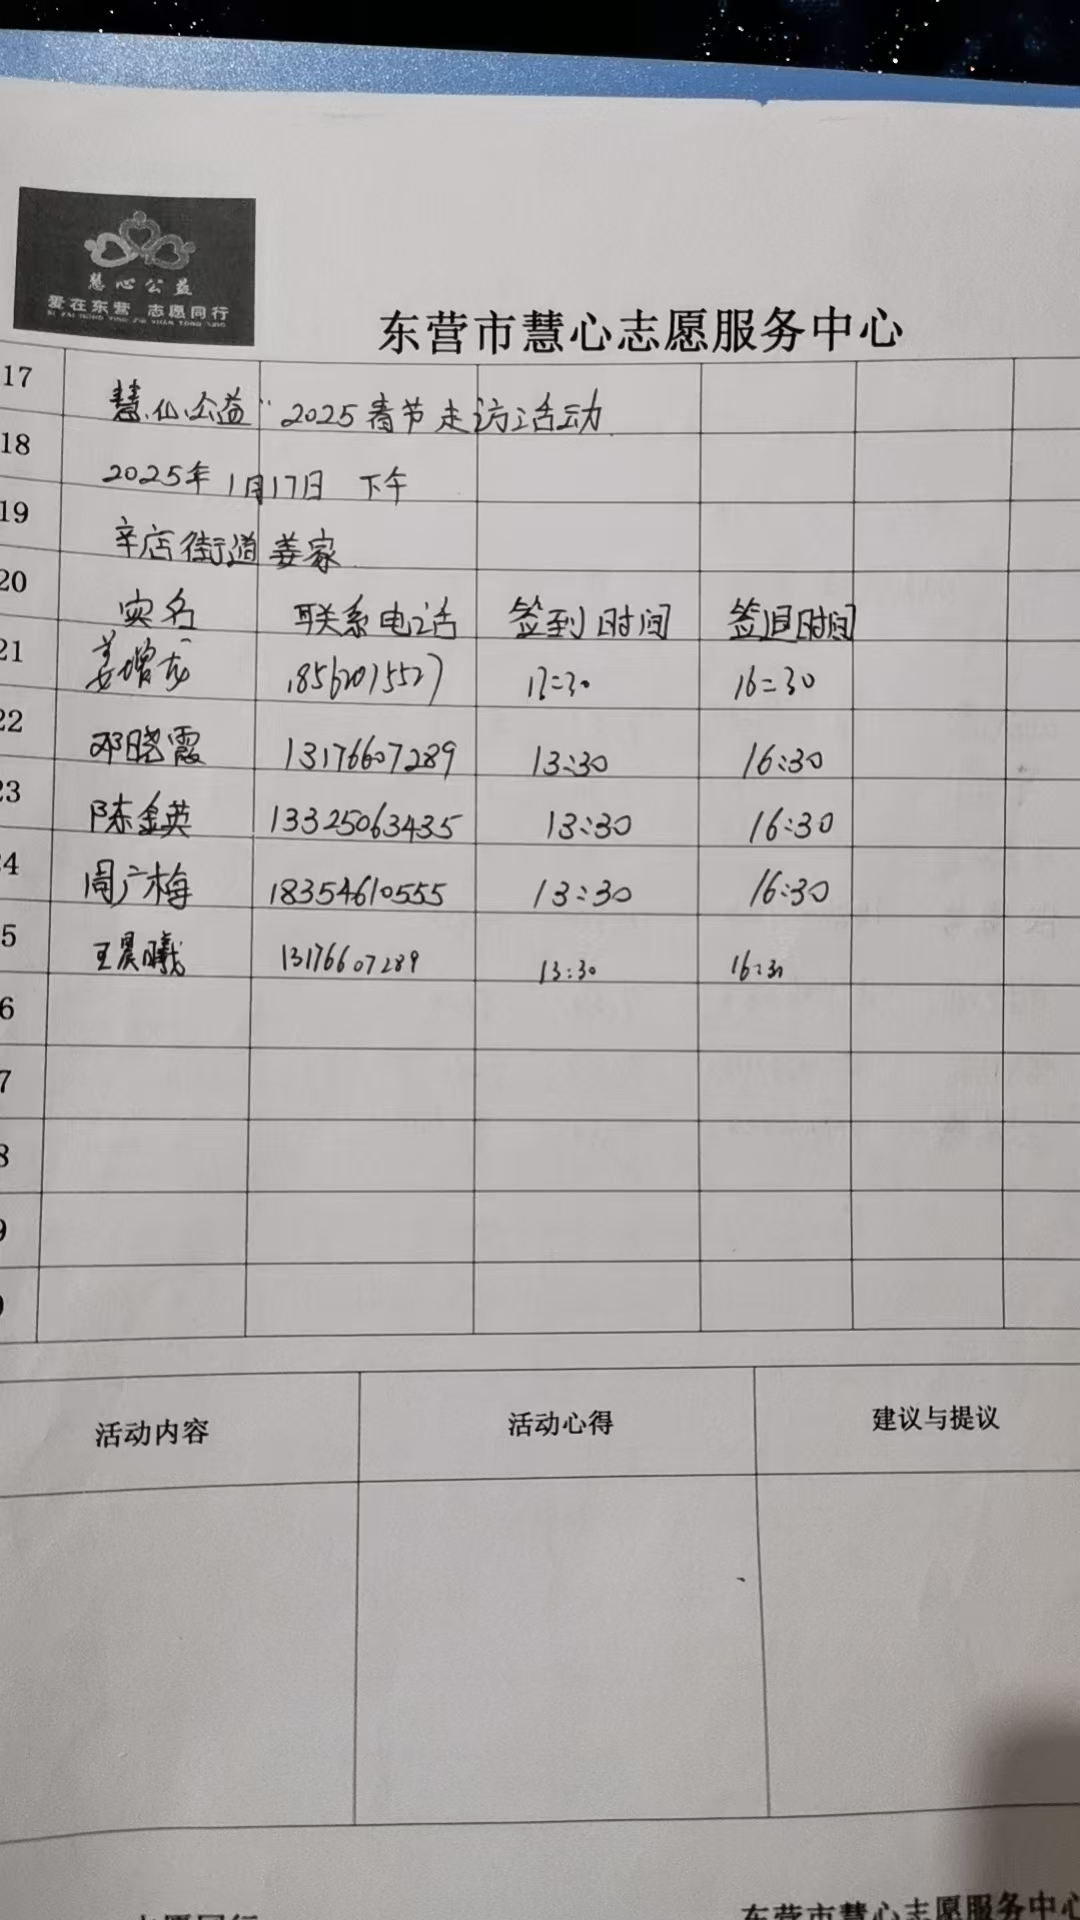 慧心公益
爱在东营 志愿同行
AI ZAI DONG YING ZHI YUAN TONG XING
东营市慧心志愿服务中心
17 慧心公益"2025春节走访活动
18 2025年1月17日 下午
19 辛店街道姜家
20 实名 联系电话 签到时间 签退时间
21 姜增龙 18562015527 13:30 16:30
22 邓晓霞 13176607289 13:30 16:30
23 陈金英 13325063435 13:30 16:30
24 周广梅 18354610555 13:30 16:30
5 王晨曦 13176607289 13:30 16:30
6
7
8
9
活动内容 活动心得 建议与提议
志愿同行 东营市慧心志愿服务中心